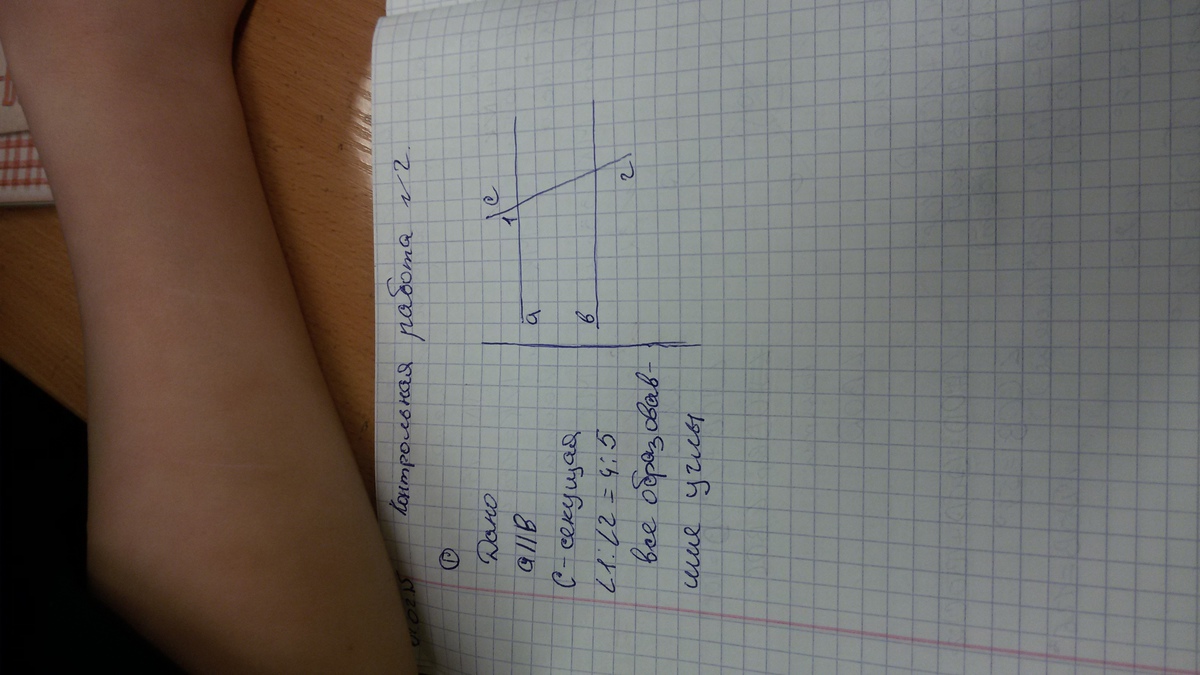 Контрольная работа №2.
①
Дано
a||B
C - секущая
∠1:∠2 = 4:5
все образовав-
шие углы
C
1
a
в
2